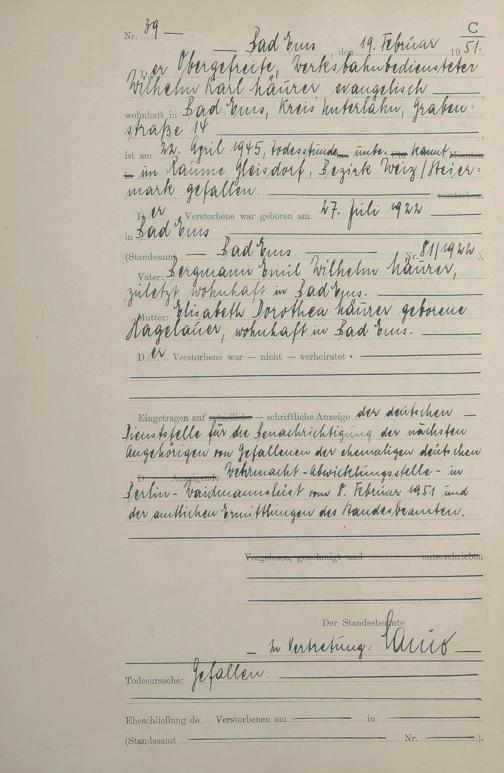 C
Nr. 39
Bad Ems, den 19. Februar 1951.
Der Obergefreite, Werksbahnbediensteter
Wilhelm Karl Häurer evangelisch
wohnhaft in Bad Ems, Kreis Unterlahn, Graben=
straße 14
ist am 22. April 1945, Todesstunde unbe- Uhr kannt Minuten
in im Raume Gleisdorf, Bezirk Weiz/Steier=
mark gefallen. verstorben.
Der Verstorbene war geboren am 27. Juli 1922
in Bad Ems
(Standesamt Bad Ems Nr. 81/1922).
Vater: Bergmann Emil Wilhelm Häurer,
zuletzt wohnhaft in Bad Ems.
Mutter: Elisabeth Dorothea Häurer geborene
Hagelauer, wohnhaft in Bad Ems.
Der Verstorbene war — nicht — verheiratet.
Eingetragen auf mündliche — schriftliche Anzeige der deutschen
Dienststelle für die Benachrichtigung der nächsten
Angehörigen von Gefallenen der ehemaligen deutschen
D Anzeigende Wehrmacht-Abwicklungsstelle - in
Berlin-Waidmannslust vom 8. Februar 1951 und
der amtlichen Ermittlungen des Standesbeamten.
Vorgelesen, genehmigt und unterschrieben
Der Standesbeamte
In Vertretung:
Todesursache: Gefallen.
Eheschließung de Verstorbenen am in
(Standesamt Nr. ).